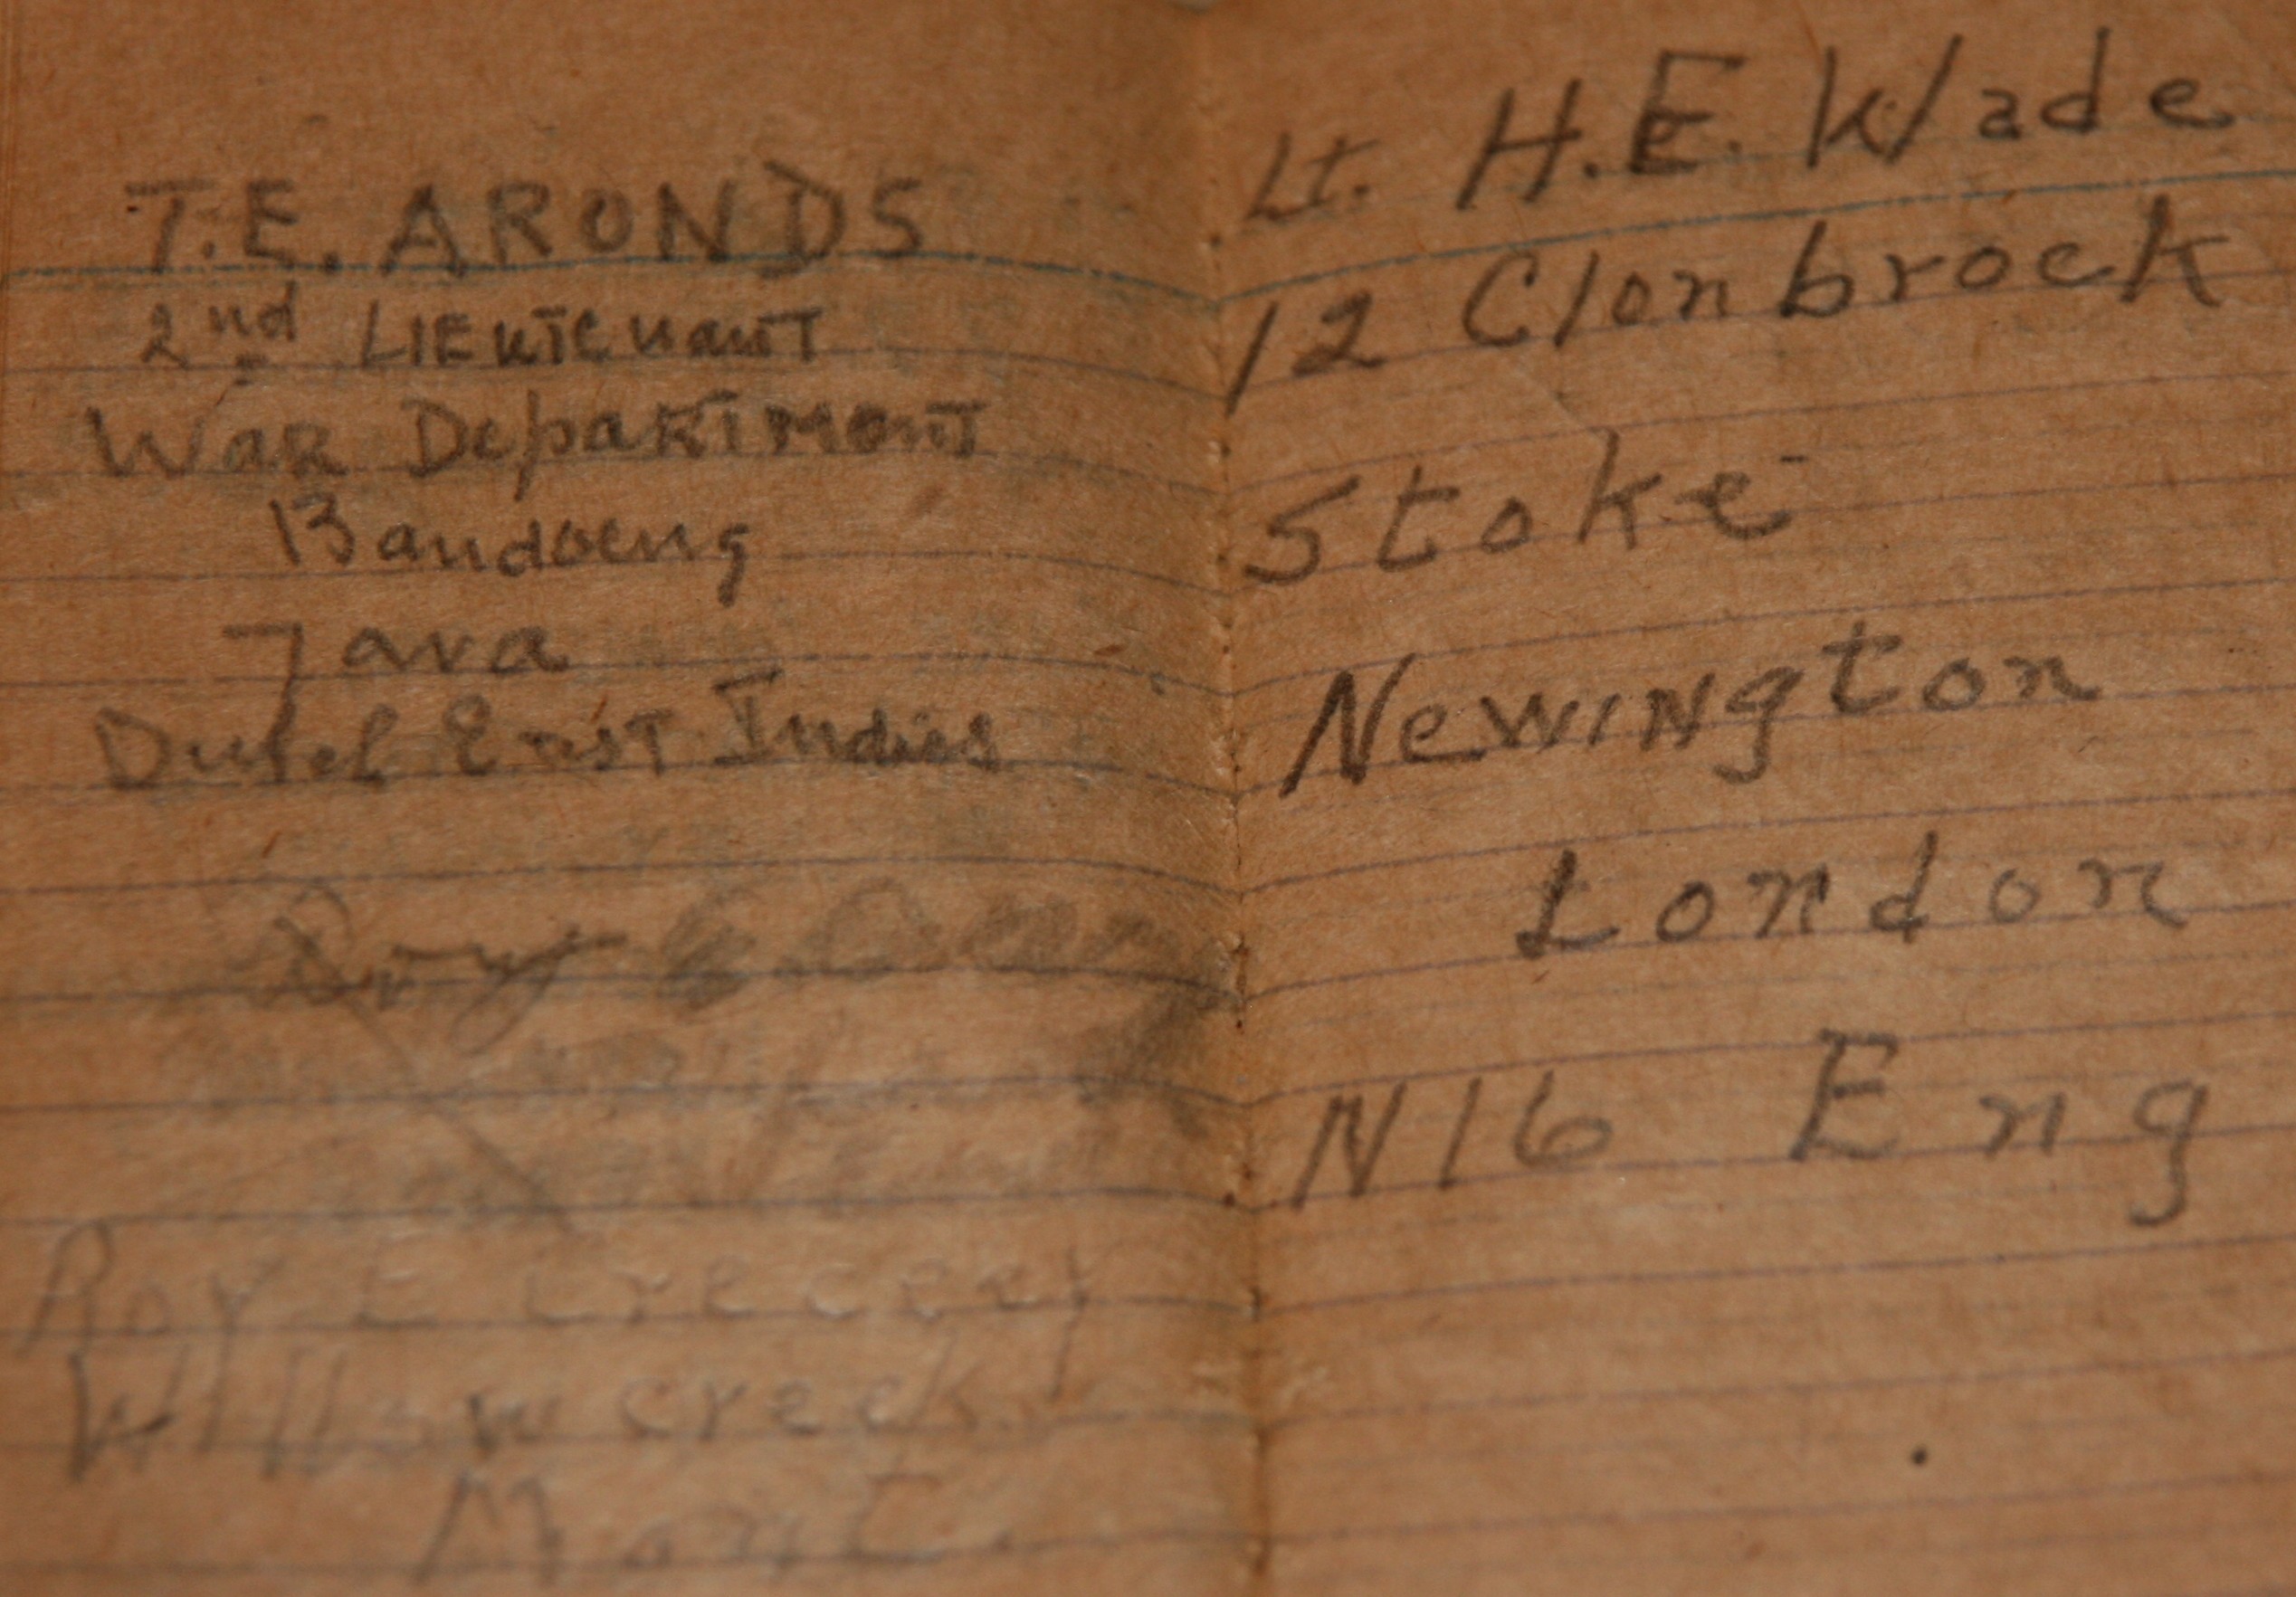 T.E. ARONDS
2nd LIEUTENANT
WAR DEPARTMENT
Bandoeng
Java
Dutch East Indies
Roy E
Willow creek
Mont.
Lt. H.E. Wade
12 Clonbrock
Stoke
Newington
London
N16 Eng